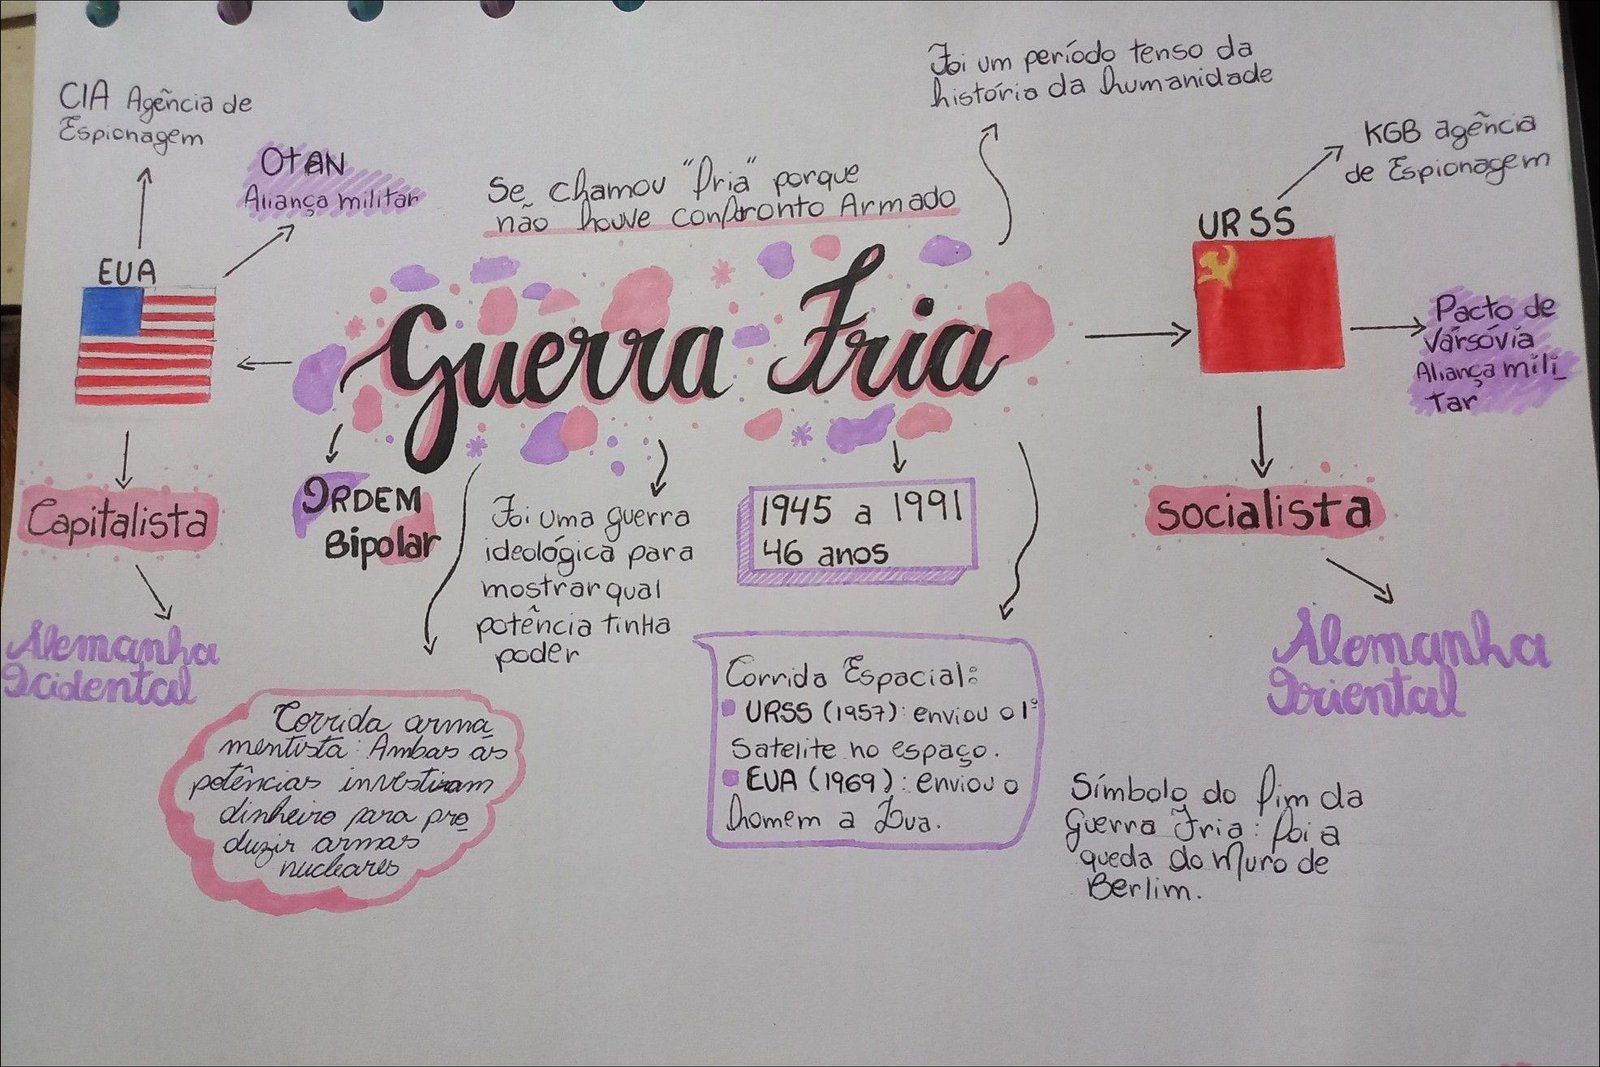 CIA Agência de
Espionagem
OTAN
Aliança militar
EUA
Capitalista
Alemanha
Ocidental
Se chamou "fria" porque
não houve confronto Armado
Foi um período tenso da
história da humanidade
Guerra Fria
ORDEM
Bipolar
Foi uma guerra
ideológica para
mostrar qual
potência tinha
poder
1945 a 1991
46 anos
Corrida arma
mentista: Ambas as
potências investiram
dinheiro para pro
duzir armas
nucleares
Corrida Espacial:
URSS (1957): enviou o 1º
Satelite no espaço.
EUA (1969): enviou o
homem a Lua.
KGB agência
de Espionagem
URSS
Pacto de
Varsóvia
Aliança mili_
tar
socialista
Alemanha
Oriental
Símbolo do fim da
Guerra Fria: foi a
queda do Muro de
Berlim.